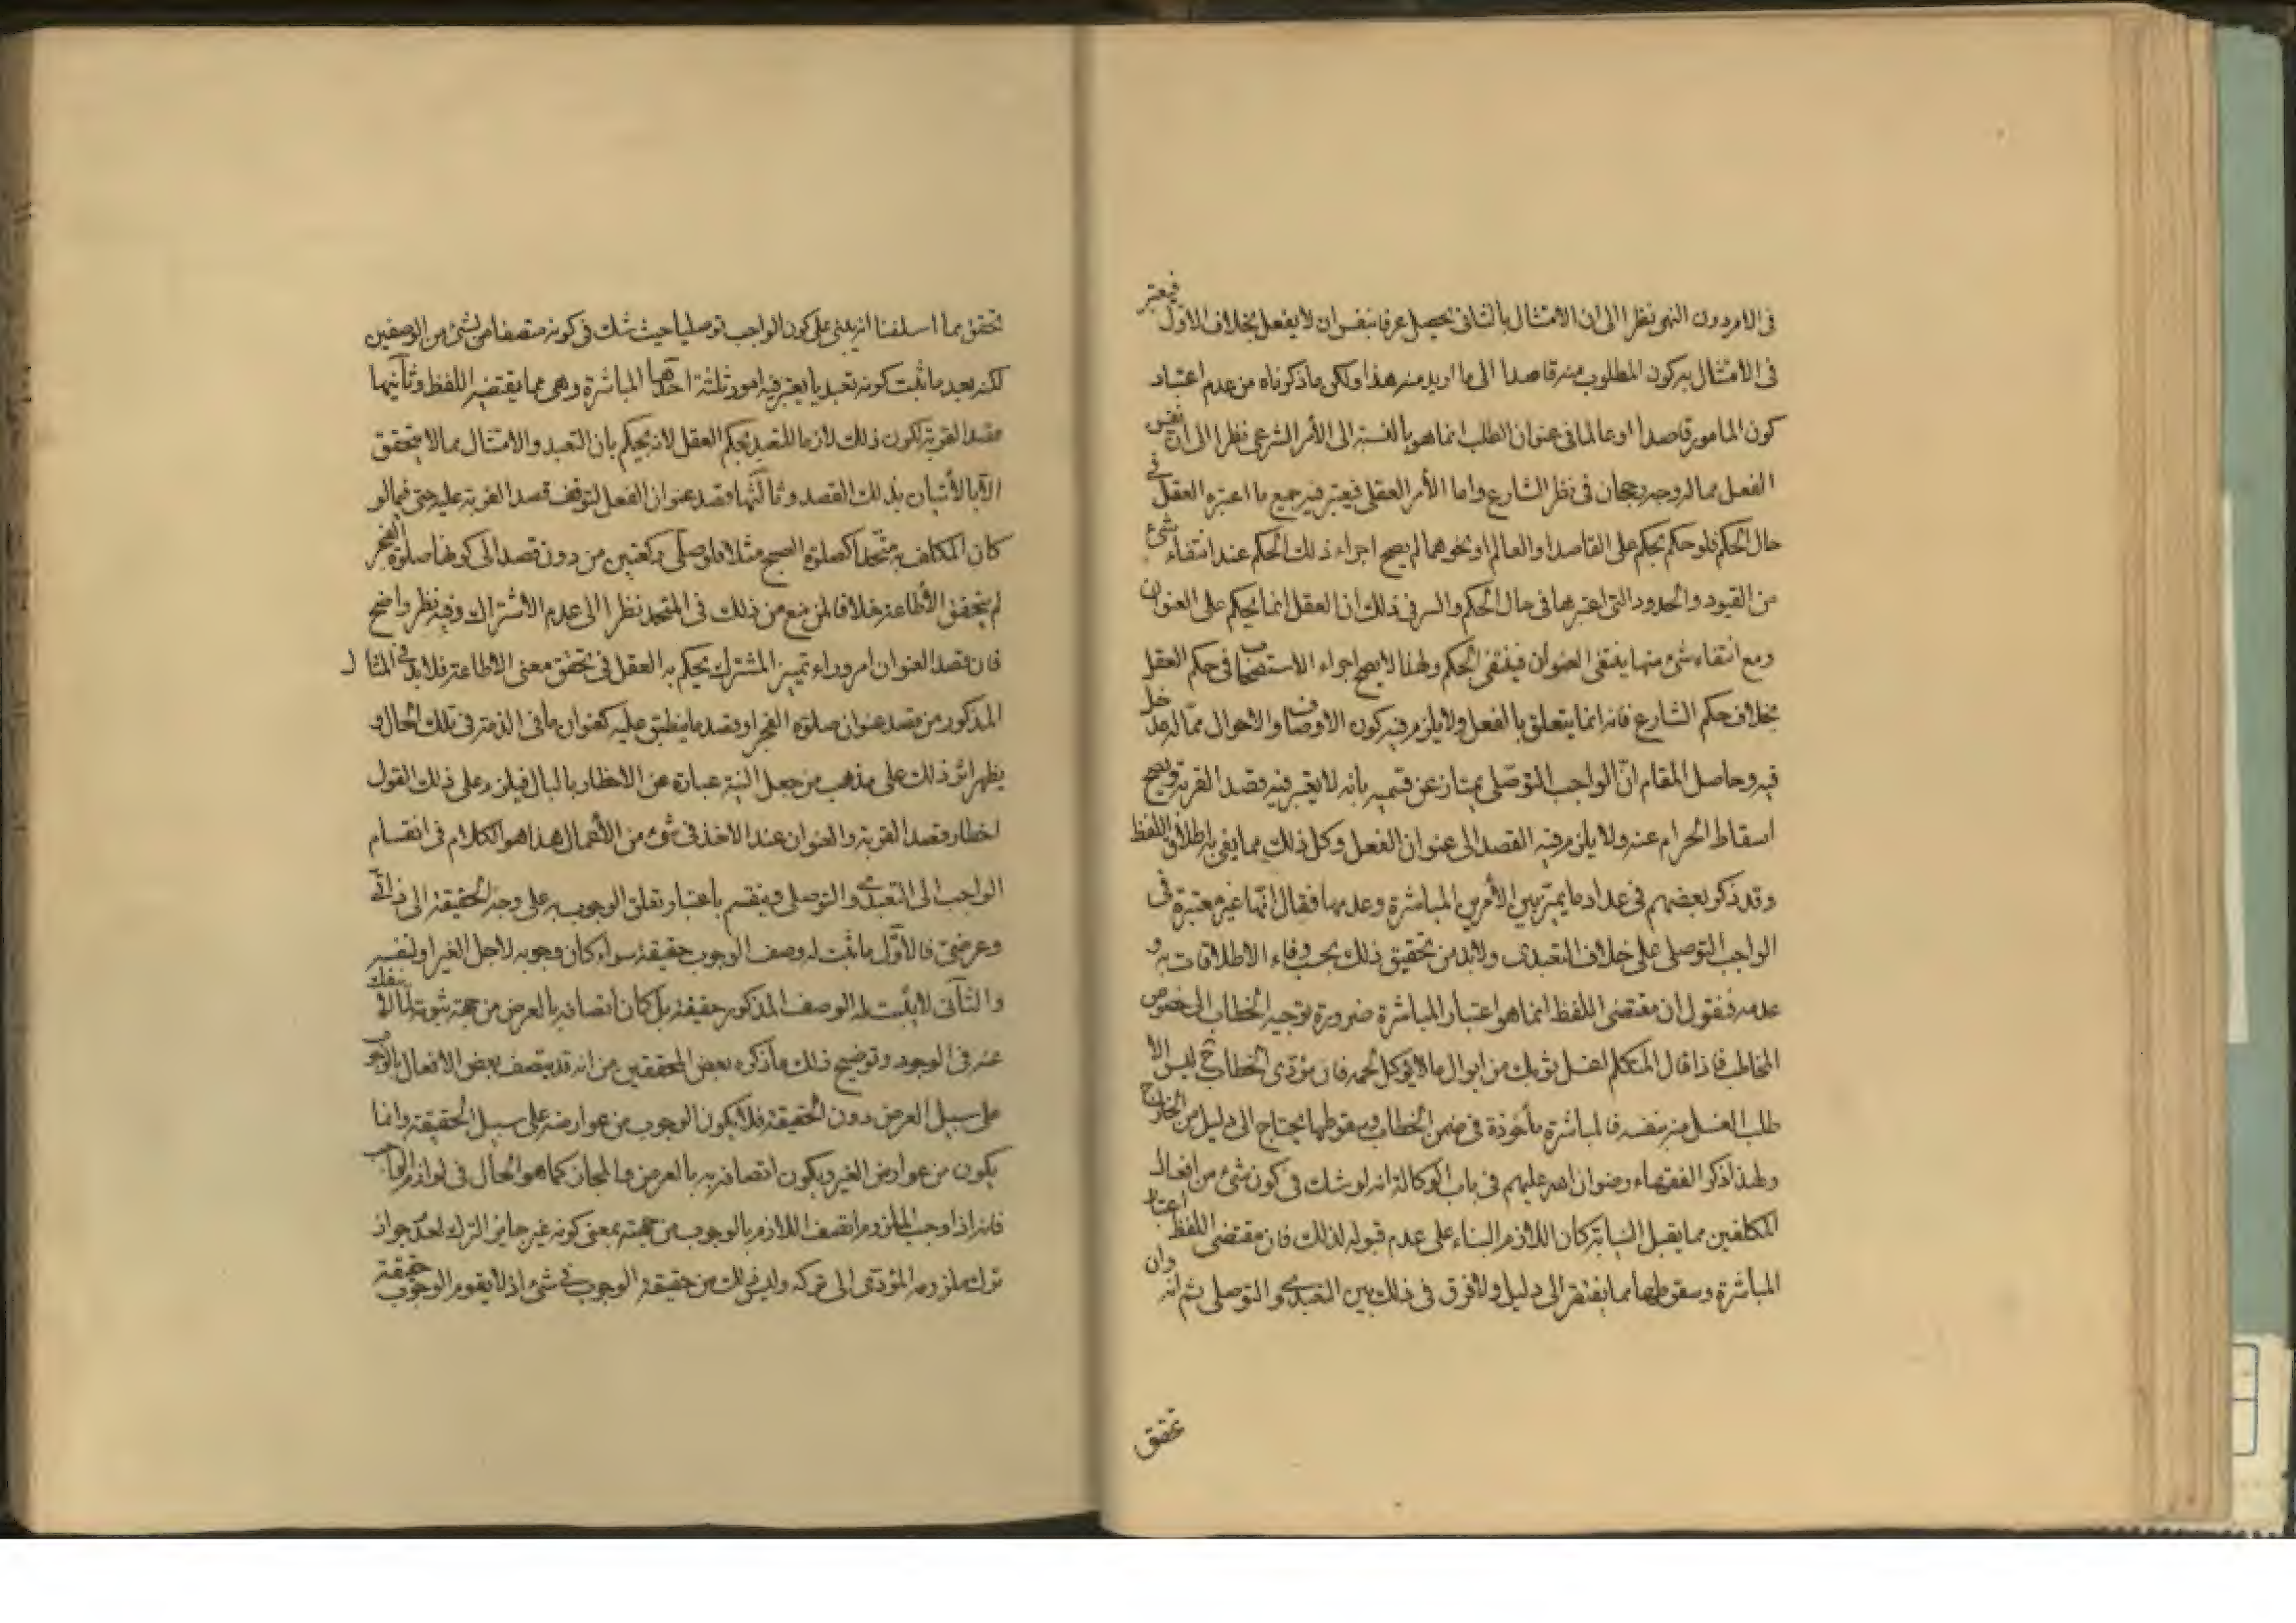 فى الامر دون النهى نظرا الى ان الامتثال بالثانى يحصل عرفا بنفس ان لا يفعل بخلاف الاول فيعتبر
فى الامتثال به كون المطلوب منه قاصدا الى ما اريد منه هذا ولكن ما ذكرناه من عدم اعتبار
كون المامور قاصدا او عالما فى عنوان الطلب انما هو بالنسبة الى الأمر الشرعى نظرا الى ان نفس
الفعل مما له وجه رجحان فى نظر الشارع واما الأمر العقلى فيعتبر فيه جميع ما اعتبره العقل فى
حال الحكم فلو حكم بحكم على القاصد او العالم او نحوهما لم يصح اجراء ذلك الحكم عند انتفاء شىء
من القيود والحدود التى اعتبرها فى حال الحكم والسر فى ذلك ان العقل انما يحكم على العنوان
ومع انتفاء شىء منها ينتفى العنوان فينتفى الحكم ولهذا لا يصح اجراء الاستصحاب فى حكم العقل
بخلاف حكم الشارع فانه انما يتعلق بالفعل ولا يلزم فيه كون الاوصاف والاحوال مما له مدخل
فيه وحاصل المقام انّ الواجب التوصّلى يمتاز عن قسميه بانه لا يعتبر فيه قصد القربة ويصح
اسقاط الحرام عنه ولا يلزم فيه القصد الى عنوان الفعل وكل ذلك مما يفى به اطلاق اللفظ
وقد ذكر بعضهم فى عداد ما يميّز بين الأمرين المباشرة وعدمها فقال انّها غير معتبرة فى
الواجب التوصلى على خلاف التعبدى ولابد من تحقيق ذلك بحسب وفاء الاطلاقات به و
عدمه فنقول ان مقتضى اللفظ انما هو اعتبار المباشرة ضرورة توجيه الخطاب الى خصوص
المخاطب فاذا قال المتكلم اغسل ثوبك من ابوال ما لا يؤكل لحمه فان مؤدّى الخطاب ح ليس الا
طلب الغسل منه بنفسه فالمباشرة مأخوذة فى ضمن الخطاب وسقوطها يحتاج الى دليل من الخارج
ولهذا ذكر الفقهاء رضوان الله عليهم فى باب الوكالة انه لو شك فى كون شىء من افعال
المكلفين مما يقبل النيابة كان اللازم البناء على عدم قبوله لذلك فان مقتضى اللفظ اعتبار
المباشرة وسقوطها مما يفتقر الى دليل ولا فرق فى ذلك بين التعبدى والتوصلى ثم انه وان
تحقق
تحقق مما اسلفنا انه يبنى على كون الواجب توصليا حيث شك فى كونه متصفا من بشىء من الوصفين
لكنه بعد ما ثبت كونه تعبديا يعتبر فيه امور ثلثة احدها المباشرة وهى مما يقتضيه اللفظ وثانيها
قصد القربة لكون ذلك لازما للتعبد بحكم العقل لانه يحكم بان التعبد والامتثال مما لا يتحقق
الّا بالأتيان بذلك القصد وثالثها قصد عنوان الفعل لتوقف قصد القربة عليه حتى فيما لو
كان المكلف به متّحدا كصلوة الصبح مثلا فلو صلّى ركعتين من دون قصد الى كونها صلوة الفجر
لم يتحقق الأطاعة خلافا لمن منع من ذلك فى المتحد نظرا الى عدم الأشتراك وفيه نظر واضح
فان قصد العنوان امر وراء تميز المشترك يحكم به العقل فى تحقق معنى الاطاعة فلابد فى المثال
المذكور من قصد عنوان صلوة الفجر او قصد ما ينطبق عليه كعنوان ما فى الذمة فى تلك الحال و
يظهر اثر ذلك على مذهب من جعل النية عبارة عن الاخطار بالبال فيلزم على ذلك القول
اخطار قصد القربة والعنوان عند الاخذ فى شىء من الأعمال هذا هو الكلام فى انقسام
الواجب الى التعبدى والتوصلى وينقسم باعتبار تعلق الوجوب به على وجه الحقيقة الى ذاتى
وعرضى فالأوّل ما ثبت له وصف الوجوب حقيقة سواء كان وجوبه لاجل الغير او لنفسه
والثانى لا يثبت له الوصف المذكور حقيقة بل كان اتصافه بالعرض من جهة ثبوته لما لا ينفك
عنه فى الوجود وتوضيح ذلك ما ذكره بعض المحققين من انه قد يتصف بعض الافعال بالوجوب
على سبيل العرض دون الحقيقة فلا يكون الوجوب من عوارضه على سبيل الحقيقة وانما
يكون من عوارض الغير ويكون اتصافه به بالعرض والمجاز كما هو الحال فى لوازم الواجب
فانه اذا وجب الملزوم اتصف اللازم بالوجوب من جهته بمعنى كونه غير جايز الترك لعدم جواز
ترك ملزومه المؤدّى الى تركه وليس ذلك من حقيقة الوجوب فى شىء اذ لا يقوم الوجوب حقيقة